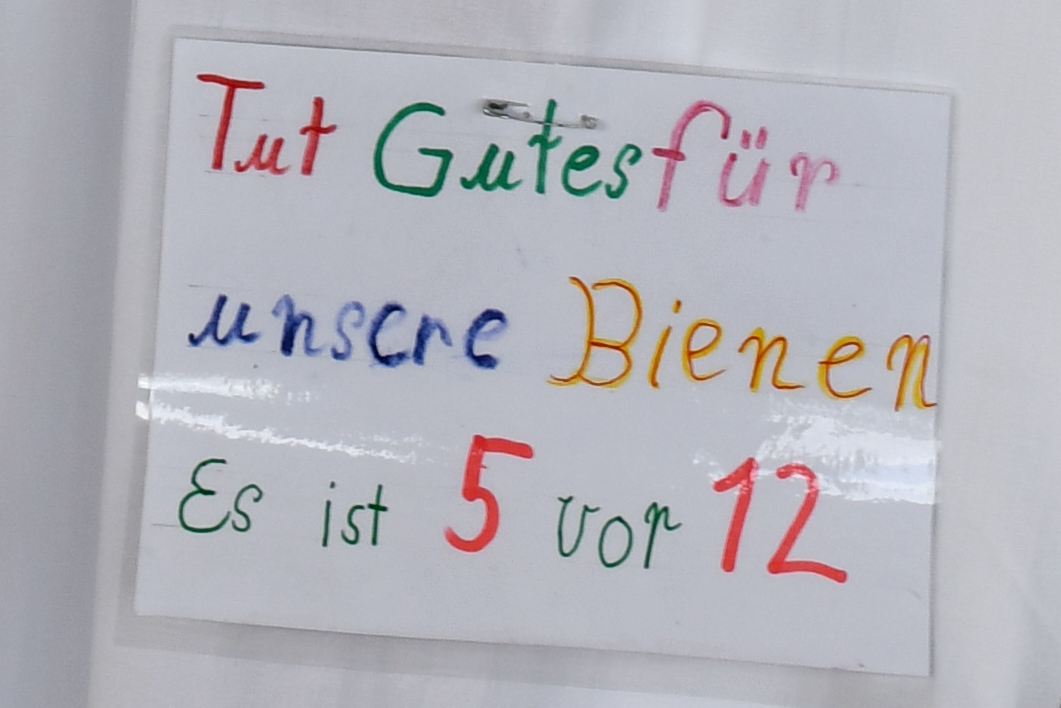 Tut Gutes für
unsere Bienen
Es ist 5 vor 12